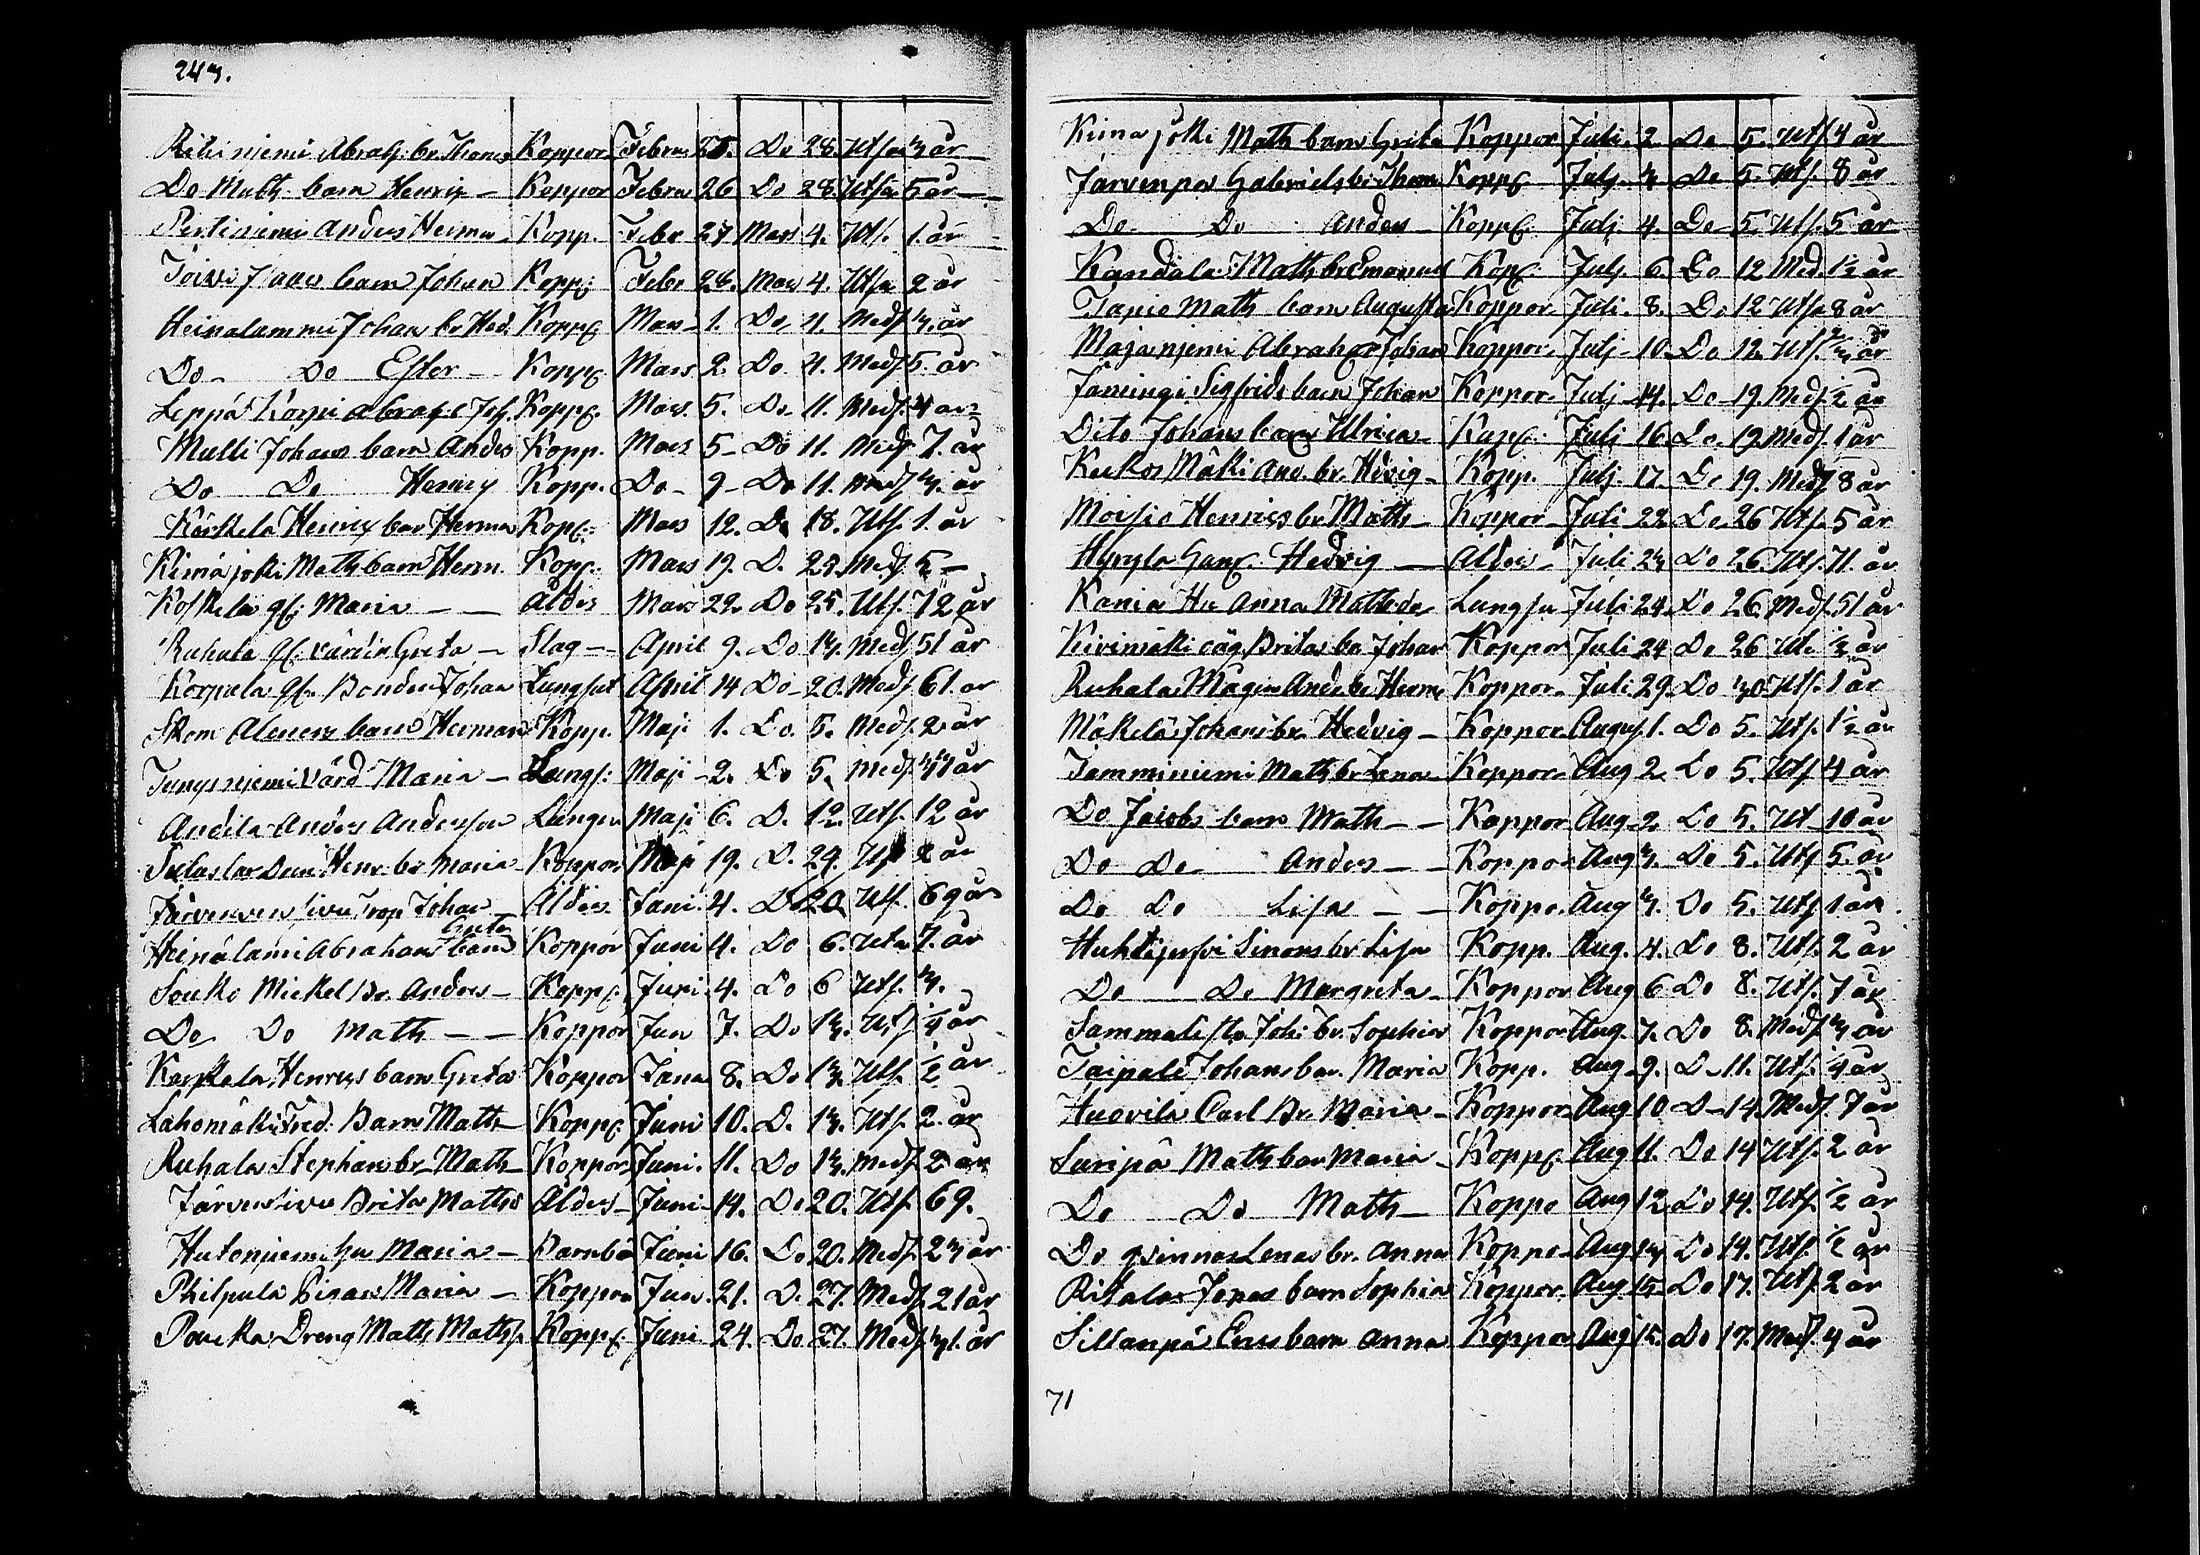 243.
Ritiniemi Abrah: br. Thomas Koppor Febru 25. Do 28. Utfa 3 år
Do Math barn Henrix – Koppor Febru 26 Do 28. Utfa 5 år
Pertiniemi Anders Herman Kopp. Febr 27 Mars 4. Utf. 1. år
Toivi barn Johan Kopp: Febr 28. Mars 4. Utfa 2 år
Heinalammi Johan br Hed. Kopp: Mars 1. Do 4. Medf 3. år
Do Do Ester – Kopp: Mars 2. Do 4. Medf 5. år
Leppä Korpi Abrah: Joh. Kopp: Mars 5. Do 11. Medf. 4 år
Mulli Johans barn Anders Kopp. Mars 5 Do 11. Medf 7. år
Do Do Henrix Kopp. Do 9 Do 11. Medf 3. år
Kärkela Henrix bar Herman Kopp: Mars 12. Do 18. Utf. 1. år
Kimäjoki Maths barn Herm. Kopp. Mars 19. D. 25. Medf 5 –
Koskela gf: Maria – – Ålder Mars 22. Do 25. Utf. 72 år
Ruhala gf. värdin Greta – Slag – April 9. Do 13. Medf 51 år
Korpula gf. Bonden Johan Lungsot April 14 Do 20. Medf. 61. år
Skom barn Herman Kopp. Maji 1. Do. 5. Medf. 2 år
värd Maria – Lungf: Maji 2. Do 5. Medf 37 år
Andila Anders Andersson Lungsu Maji 6. D. 12. Utf. 12 år
Henr. br Maria Koppor Maji 19. D. 24. Utf 2 år
Johan Ålder Juni 4. Do 20. Utf. 69 år
Heinälami Abrahams barn Greta Koppor Juni 4. Do 6. Utfa 7. år
Souko Mickel br. Anders – Kopp: Juni 4. Do 6 Utf. 3.
Do Do Math – – Koppor Jun 7. Do 13. Utf. ¼ år
Karkela Henrys barn Greta Koppor Juni 8. Do 13. Utf. ½ år
Lahomäki Fred. Barn Math – Kopp: Juni 10. D. 13. Utf. 2. år
Ruhala Stephans br Math – Koppor Juni. 11. Do 13. Medf. 2 år
Järvensivu Brita Maths Ålder – Juni 14. Do 20. Utf. 69.
Hutoniemi hu Maria – Barnbö Juni 16. Do 20. Medf. 23 år
Philpula Pigan Maria – Koppor Jun. 21. D. 27. Medf. 21 år
Pauka Dreng Math Mathf. Kopp: Juni 24. Do 27. Medf. 31. år
Kimajoki Math barn Greta Koppor Juli. 2 Do 5. Utf. 4 år
Järvenpä Gabriels br Thom Kopp: Julj. 3 Do 5. Utf. 8 år
Do Do Anders – Kopp: Julj 4. Do 5. Utf. 5 år
Kandola Maths br Emanuel Kopp: Julj 6 Do 12 Med. 1½ år
Tapio Math barn Augusta Koppor Juli. 8. Do 12 Utfa 8 år
Majaniemi Abraham Johan Koppor Julj 10. Do 12. Utf. ¾ år
Jämingi Sigfrids barn Johan Koppor Julj 14. Do 19. Medf. ½ år
Dito Johans barn Ulrica – Kopp: Julj 16. Do. 19 Medf. 1 år
Keikos Mäki And. br. Hevig – Kopp. Julj 17. Do 19. Medf 8 år
Moisio Henrics br Math – Koppor Juli 23. Do 26 Utf. 5 år
Hyryla Hedvig – Ålder Juli 23 Do 26. Utf. 71. år
Kania Hu Anna Mathsde Lungsu Juli 24. Do 26 Medf. 51 år
Kivimäki Britas ba Johan Koppor Juli 24 Do 26 Utf. ½ år
Ruhala Mågen Ands br Herm Koppor Juli 29. Do 30. Utf. 1 år
Mäkelä Johans br. Hedvig – Koppor Augus 1. Do 5. Utf. 1½ år
Tamminiemi Maths br Lena Koppor Aug 2. Do 5. Utf. 4 år
Do Jacob barn Math – – Koppor Aug 2. Do 5. Utf 10 år
Do Do Anders – – Koppor Aug 3. Do 5. Utf. 5. år
Do Do Lisa – – Koppo. Aug 3. Do 5. Utf 1 år.
Huhtijerfvi Simons br Lisa Kopp. Aug. 4. Do 8. Utf. 2 år
Do Do Margreta – Koppor Aug 6 Do 8. Utf. 7 år
Sammalisto Joh: br. Sophia Koppor Aug. 7. Do 8. Medf. 3 år
Taipale Johans bar. Maria Kopp. Aug 9. D. 11. Utf. ¼ år
Huovila Carl Br. Maria – Koppor Aug 10 D 14. Medf. 7 år
Suripä Maths bar Maria – Kopp: Aug 11. Do 14 Utf. 2 år
Do Do Math – Koppo Aug 12. Do 14. Utf. ½ år
Do qvinnas Lenas br. Anna Koppo Aug 13 Do 14. Utf. ½ år
Ritala Jonas barn Sophia Koppor. Aug 15. Do 17. Utf. 2 år
Sillanpä Erics barn Anna Koppor Aug 15. Do 17. Medf. 4 år
71